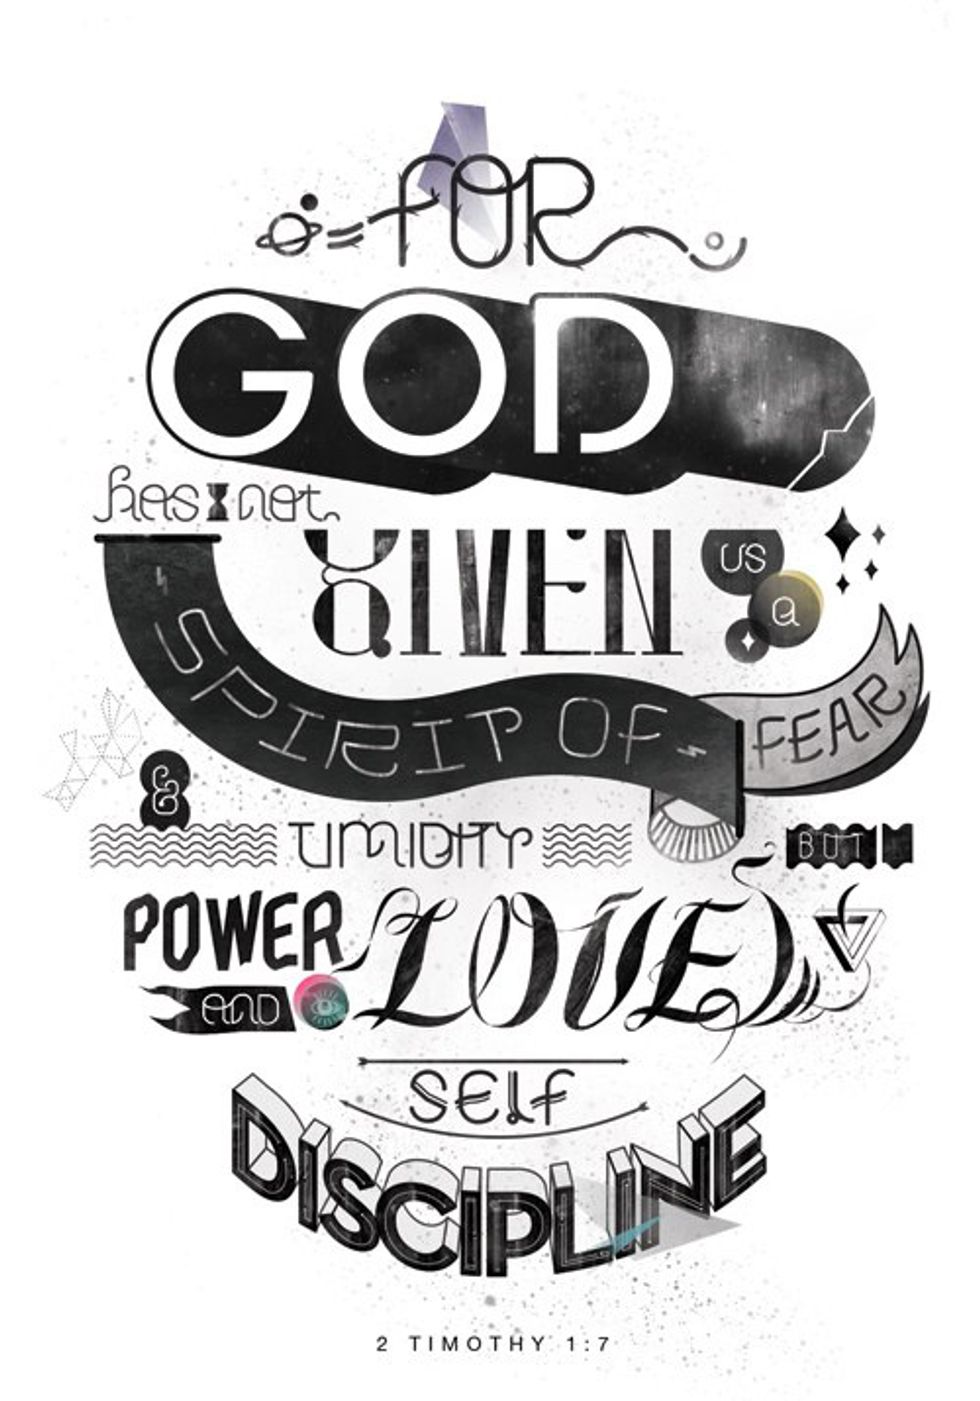 FOR
GOD
has not
GIVEN us a
SPIRIT OF FEAR
& TIMIDITY BUT
POWER LOVE
AND
SELF
DISCIPLINE
2 TIMOTHY 1:7